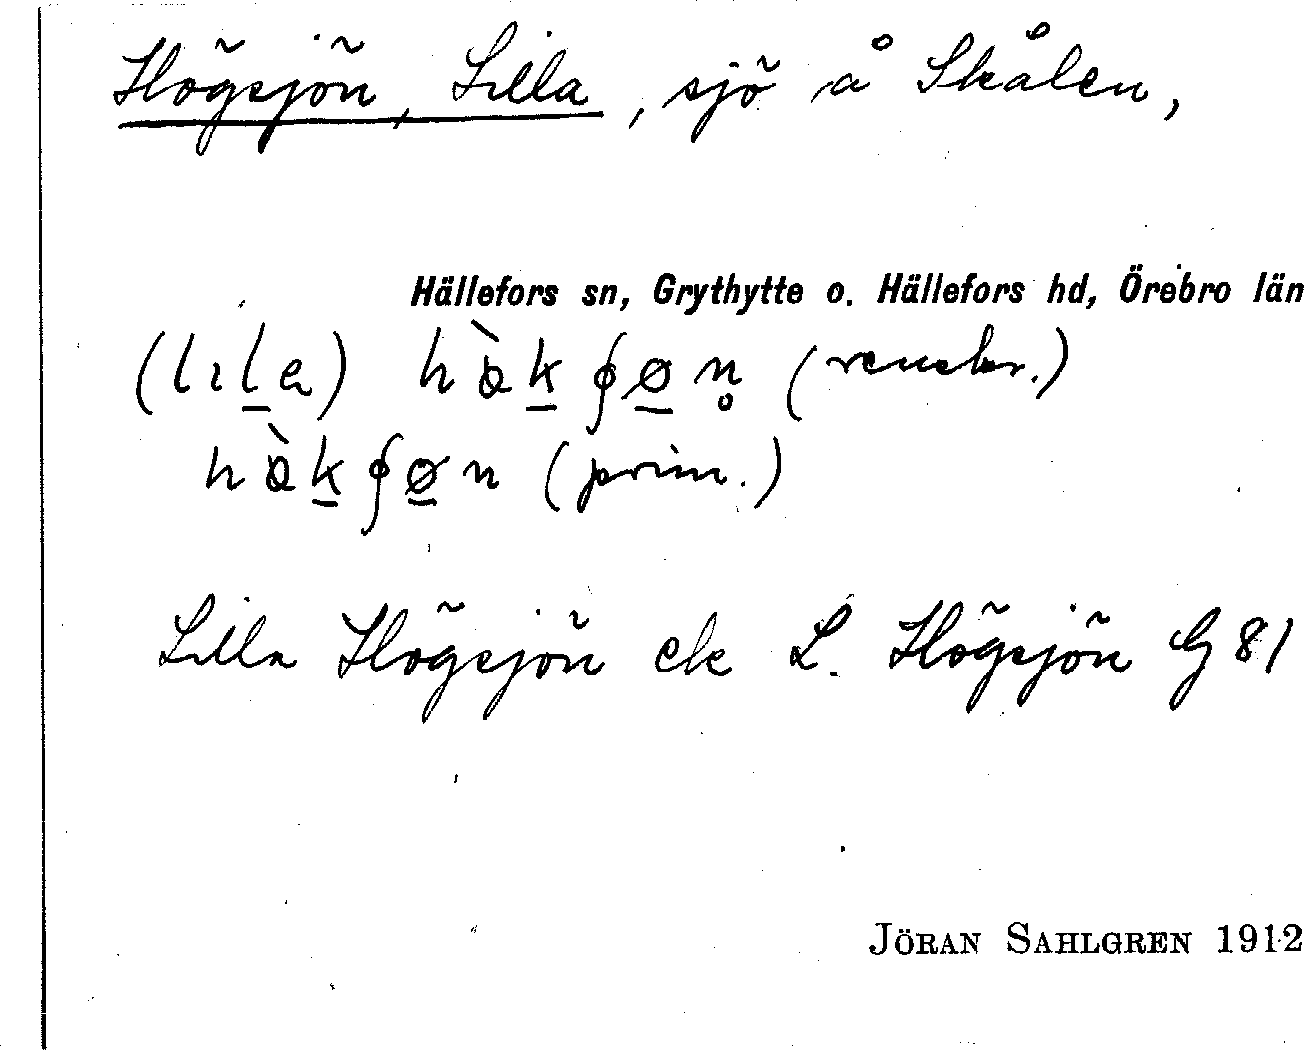 Högsjön, Lilla, sjö å Skålen,
Hällefors sn, Grythytte o. Hällefors hd, Örebro län
(lıl̲a) hòk̲ʃø̲n̥
hòk̲ʃø̲n (prim.)
Lilla Högsjön ek L. Högsjön G 81
JÖRAN SAHLGREN 1912